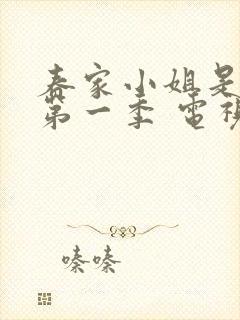 春家小姐是
第一季 電視
嗪嗪